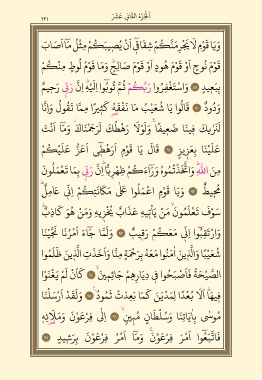 اَلْجُزْءُ الثَّانِي عَشَرَ
٢٣١
وَيَا قَوْمِ لَا يَجْرِمَنَّكُمْ شِقَاقٖٓي اَنْ يُصٖيبَكُمْ مِثْلُ مَٓا اَصَابَ
قَوْمَ نُوحٍ اَوْ قَوْمَ هُودٍ اَوْ قَوْمَ صَالِحٍ وَمَا قَوْمُ لُوطٍ مِنْكُمْ
بِبَعٖيدٍ وَاسْتَغْفِرُوا رَبَّكُمْ ثُمَّ تُوبُٓوا اِلَيْهِ اِنَّ رَبّٖي رَحٖيمٌ
وَدُودٌ قَالُوا يَا شُعَيْبُ مَا نَفْقَهُ كَثٖيرًا مِمَّا تَقُولُ وَاِنَّا
لَنَرٰيكَ فٖينَا ضَعٖيفًا وَلَوْلَا رَهْطُكَ لَرَجَمْنَاكَ وَمَٓا اَنْتَ
عَلَيْنَا بِعَزٖيزٍ قَالَ يَا قَوْمِ اَرَهْطٖٓي اَعَزُّ عَلَيْكُمْ
مِنَ اللّٰهِ وَاتَّخَذْتُمُوهُ وَرَٓاءَكُمْ ظِهْرِيًّا اِنَّ رَبّٖي بِمَا تَعْمَلُونَ
مُحٖيطٌ وَيَا قَوْمِ اعْمَلُوا عَلٰى مَكَانَتِكُمْ اِنّٖي عَامِلٌ
سَوْفَ تَعْلَمُونَ مَنْ يَأْتٖيهِ عَذَابٌ يُخْزٖيهِ وَمَنْ هُوَ كَاذِبٌ
وَارْتَقِبُٓوا اِنّٖي مَعَكُمْ رَقٖيبٌ وَلَمَّا جَٓاءَ اَمْرُنَا نَجَّيْنَا
شُعَيْبًا وَالَّذٖينَ اٰمَنُوا مَعَهُ بِرَحْمَةٍ مِنَّا وَاَخَذَتِ الَّذٖينَ ظَلَمُوا
الصَّيْحَةُ فَاَصْبَحُوا فٖي دِيَارِهِمْ جَاثِمٖينَ كَاَنْ لَمْ يَغْنَوْا
فٖيهَا اَلَا بُعْدًا لِمَدْيَنَ كَمَا بَعِدَتْ ثَمُودُ وَلَقَدْ اَرْسَلْنَا
مُوسٰى بِاٰيَاتِنَا وَسُلْطَانٍ مُبٖينٍ اِلٰى فِرْعَوْنَ وَمَلَا۬ئِهٖ
فَاتَّبَعُٓوا اَمْرَ فِرْعَوْنَ وَمَٓا اَمْرُ فِرْعَوْنَ بِرَشٖيدٍ